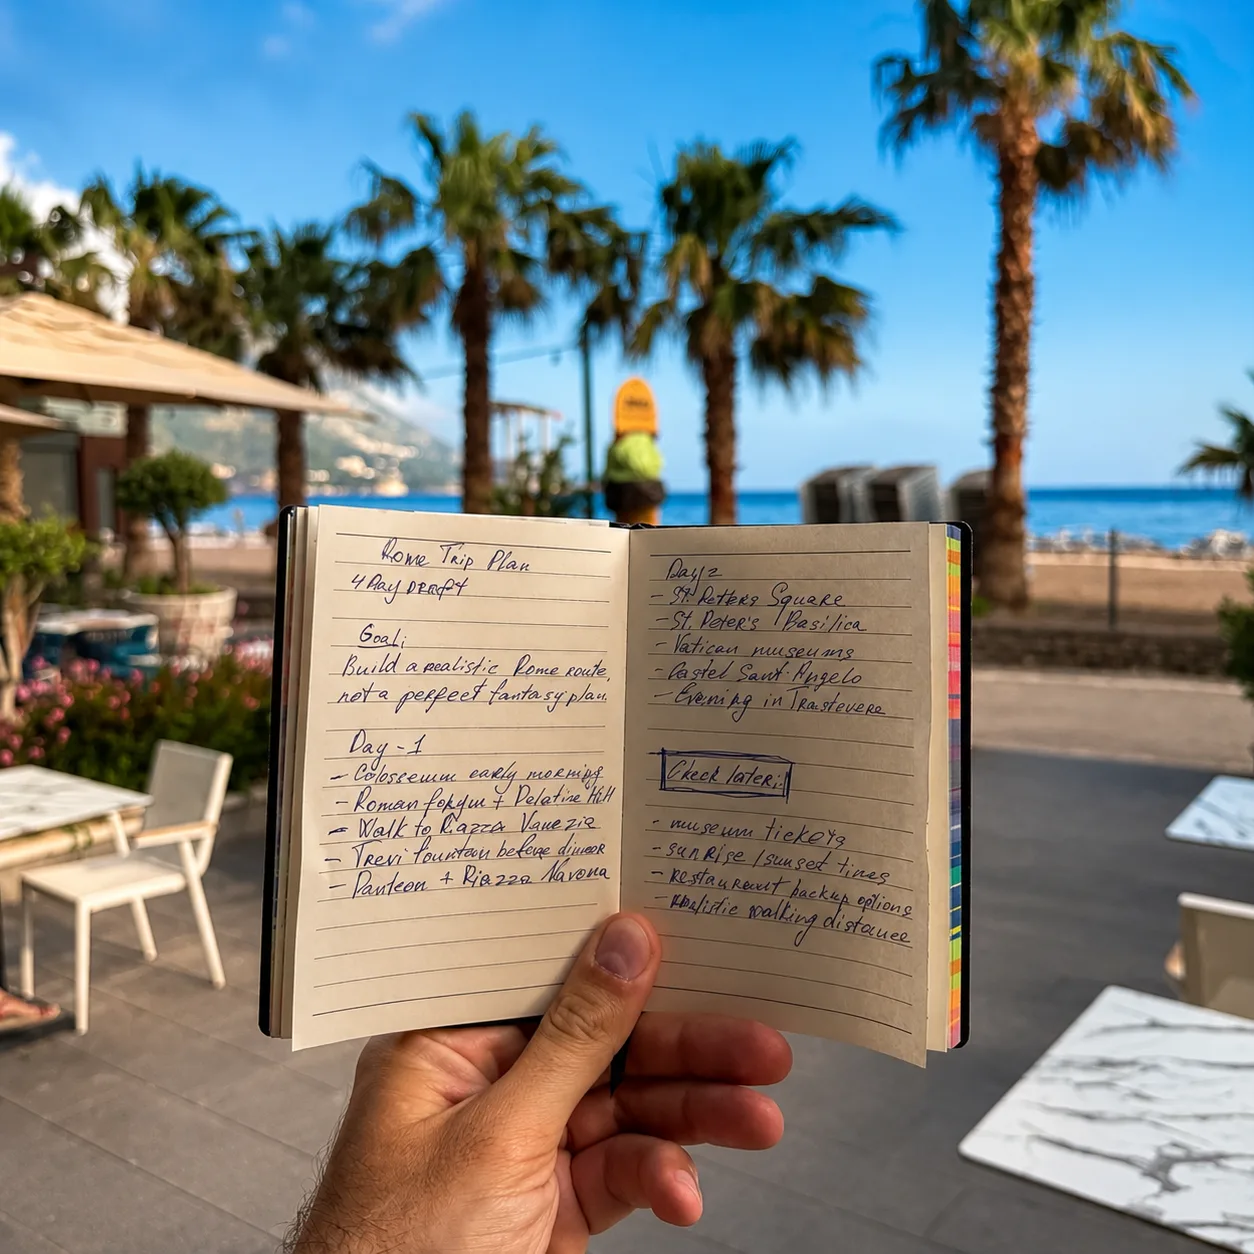 Rome Trip Plan
4 Day DRAft
Goal:
Build a realistic Rome route,
not a perfect fantasy plan.
Day - 1
- Colosseum early morning
- Roman forum + Palatine Hill
- Walk to Piazza Venezia
- Trevi fountain before dinner
- Panteon + Piazza Navona
Day 2
- St. Petters Square
- St. Peter's Basilica
- Vatican museums
- Castel Sant'Angelo
- Evening in Trastevere
Check later:
- museum tickets
- sunrise / sunset times
- restaurant backup options
- realistic walking distance